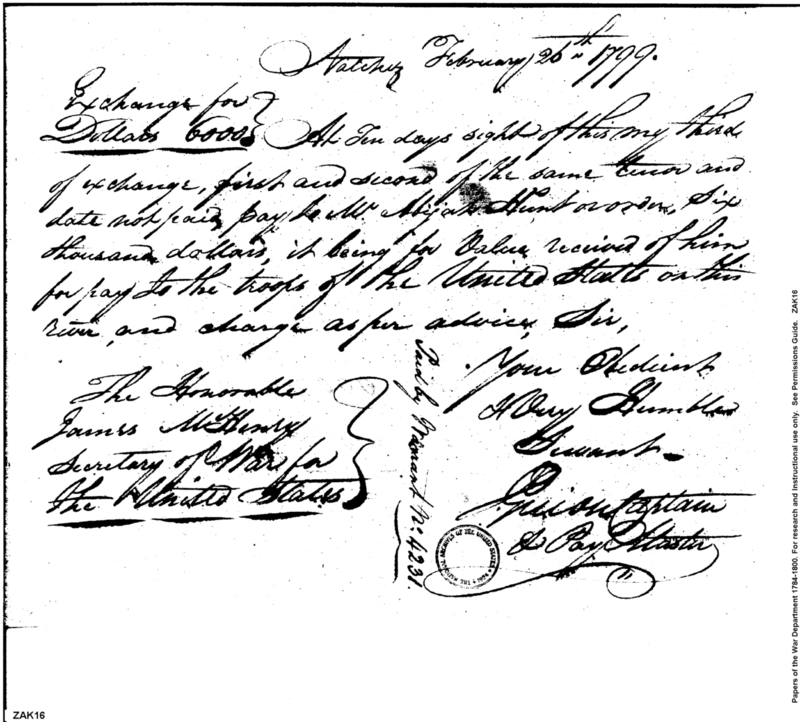 Natchez February 26th 1799.
Exchange for
Dollars 6000
At Ten days sight of this my third
of exchange, first and second of the same tenor and
date not paid, pay to Mr. Abijah Hunt or order, Six
thousand dollars, it being for Value received of him
for pay to the troops of the United States on this
river, and charge as per advice, Sir,
Your Obedient
& Very Humble
Servant
Captain
& Pay Master
The Honorable
James McHenry
Secretary of War for
the United States
Paid by Warrant No. 4231.
THE NATIONAL ARCHIVES OF THE UNITED STATES
ZAK16
Papers of the War Department 1784-1800. For research and instructional use only. See Permissions Guide. ZAK16